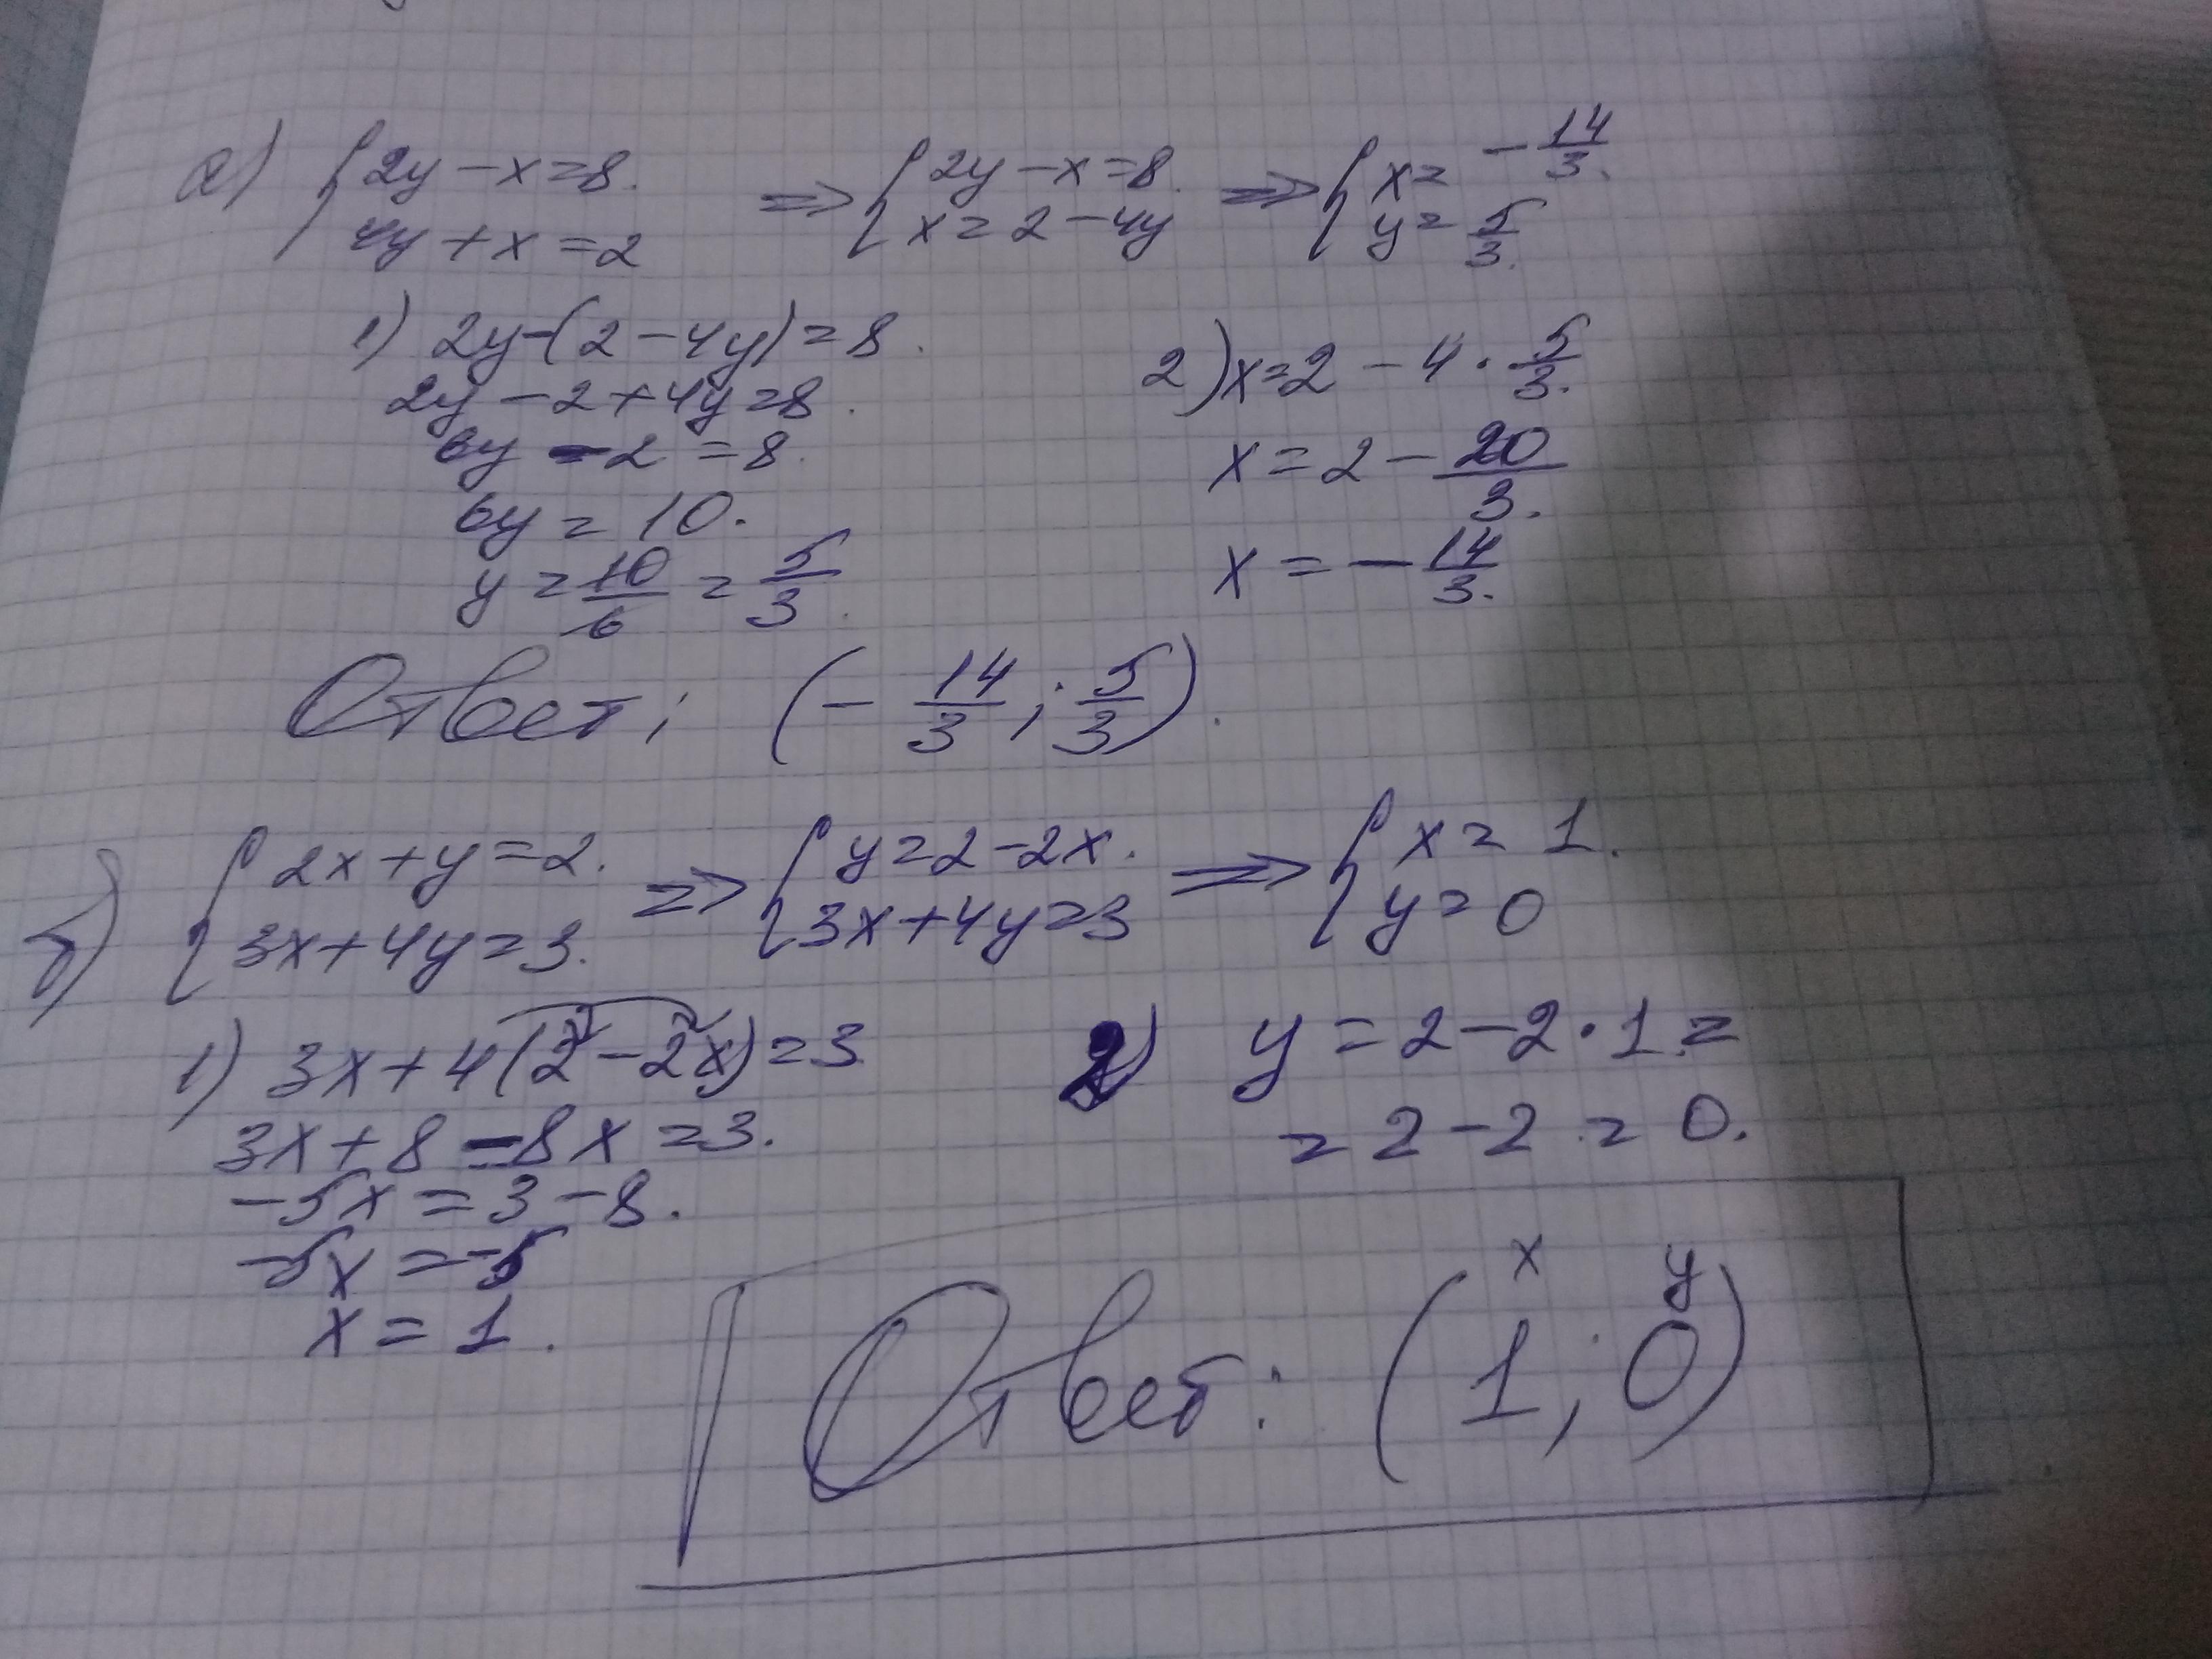 а) {2y - x = 8. => {2y - x = 8. => {x = -14/3.
4y + x = 2 x = 2 - 4y y = 5/3.
1) 2y - (2 - 4y) = 8.
2y - 2 + 4y = 8.
6y - 2 = 8.
6y = 10.
y = 10/6 = 5/3.
2) x = 2 - 4 · 5/3.
x = 2 - 20/3.
x = -14/3.
Ответ: (-14/3; 5/3).
б) {2x + y = 2. => {y = 2 - 2x. => {x = 1.
3x + 4y = 3. 3x + 4y = 3 y = 0
1) 3x + 4(2 - 2x) = 3
3x + 8 - 8x = 3.
-5x = 3 - 8.
-5x = -5
x = 1.
2) y = 2 - 2 · 1 =
= 2 - 2 = 0.
x y
Ответ: (1; 0)